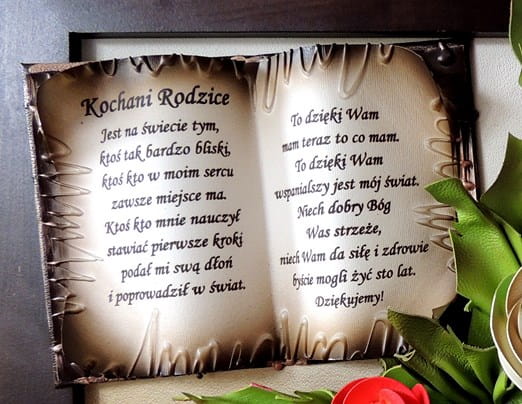 Kochani Rodzice
Jest na świecie tym,
ktoś tak bardzo bliski,
ktoś kto w moim sercu
zawsze miejsce ma.
Ktoś kto mnie nauczył
stawiać pierwsze kroki
podał mi swą dłoń
i poprowadził w świat.
To dzięki Wam
mam teraz to co mam.
To dzięki Wam
wspanialszy jest mój świat.
Niech dobry Bóg
Was strzeże,
niech Wam da siłę i zdrowie
byście mogli żyć sto lat.
Dziękujemy!